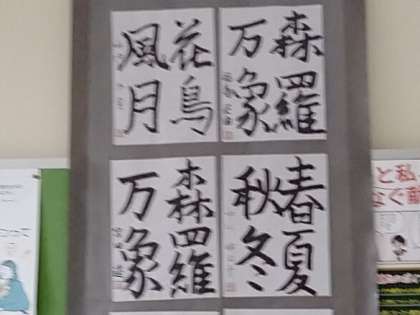 森羅
万象
花鳥
風月
春夏
秋冬
森羅
万象
と私
なぐ